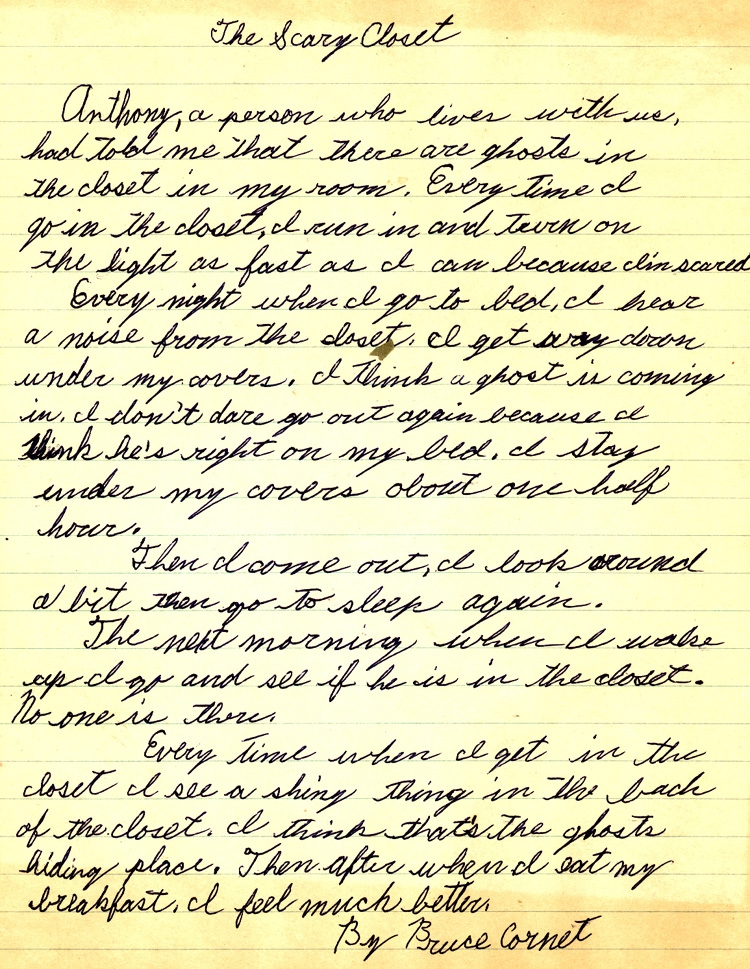 The Scary Closet
Anthony, a person who lives with us,
had told me that there are ghosts in
the closet in my room. Every time I
go in the closet, I run in and turn on
the light as fast as I can because I'm scared
Every night when I go to bed, I hear
a noise from the closet. I get way down
under my covers. I think a ghost is coming
in. I don't dare go out again because I
think he's right on my bed. I stay
under my covers about one half
hour.
Then I come out, I look around
a bit then go to sleep again.
The next morning when I wake
up I go and see if he is in the closet.
No one is there.
Every time when I get in the
closet I see a shiny thing in the back
of the closet. I think that's the ghosts
hiding place. Then after when I eat my
breakfast, I feel much better.
By Bruce Cornet